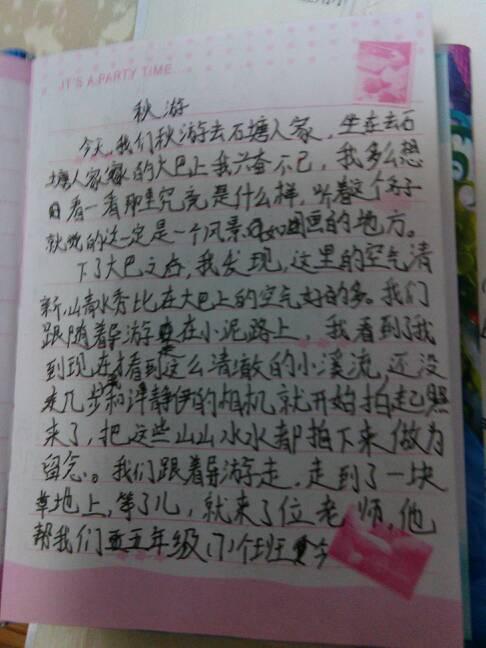 IT'S A PARTY TIME...
秋游
今天,我们秋游去石塘人家,坐在去石
塘人家的大巴上我兴奋不已,我多么想
看一看那里究竟是什么样,听着这个名字
就觉的这一定是一个风景如画的地方。
下了大巴之后,我发现,这里的空气清
新,山青水秀比在大巴上的空气好的多。我们
跟随着导游走在小泥路上,我看到了我
到现在才看到这么清澈的小溪流,还没
走几步我和许静伊的相机就开始拍起照
来了,把这些山山水水都拍下来做为
留念。我们跟着导游走,走到了一块
草地上,等了儿,就来了位老师,他
帮我们五年级(7)个班